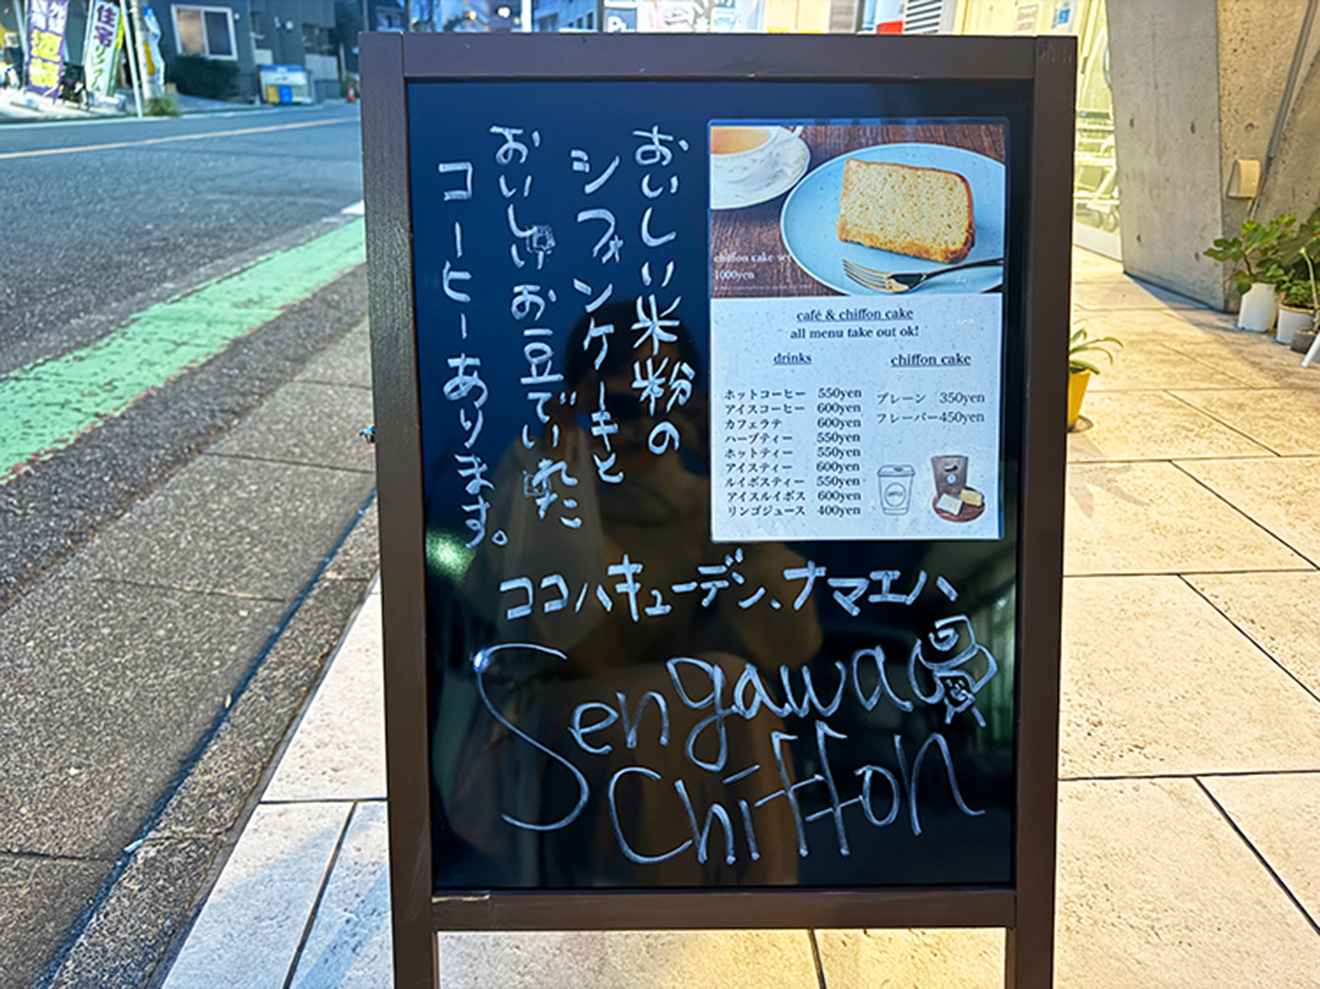 おいしい米粉の
シフォンケーキと
おいしいお豆でいれた
コーヒーあります。
chiffon cake set
1000yen
café & chiffon cake
all menu take out ok!
drinks
ホットコーヒー 550yen
アイスコーヒー 600yen
カフェラテ 600yen
ハーブティー 550yen
ホットティー 550yen
アイスティー 600yen
ルイボスティー 550yen
アイスルイボス 600yen
リンゴジュース 400yen
chiffon cake
プレーン 350yen
フレーバー450yen
ココハキューデン、ナマエハ
Sengawa
Chiffon